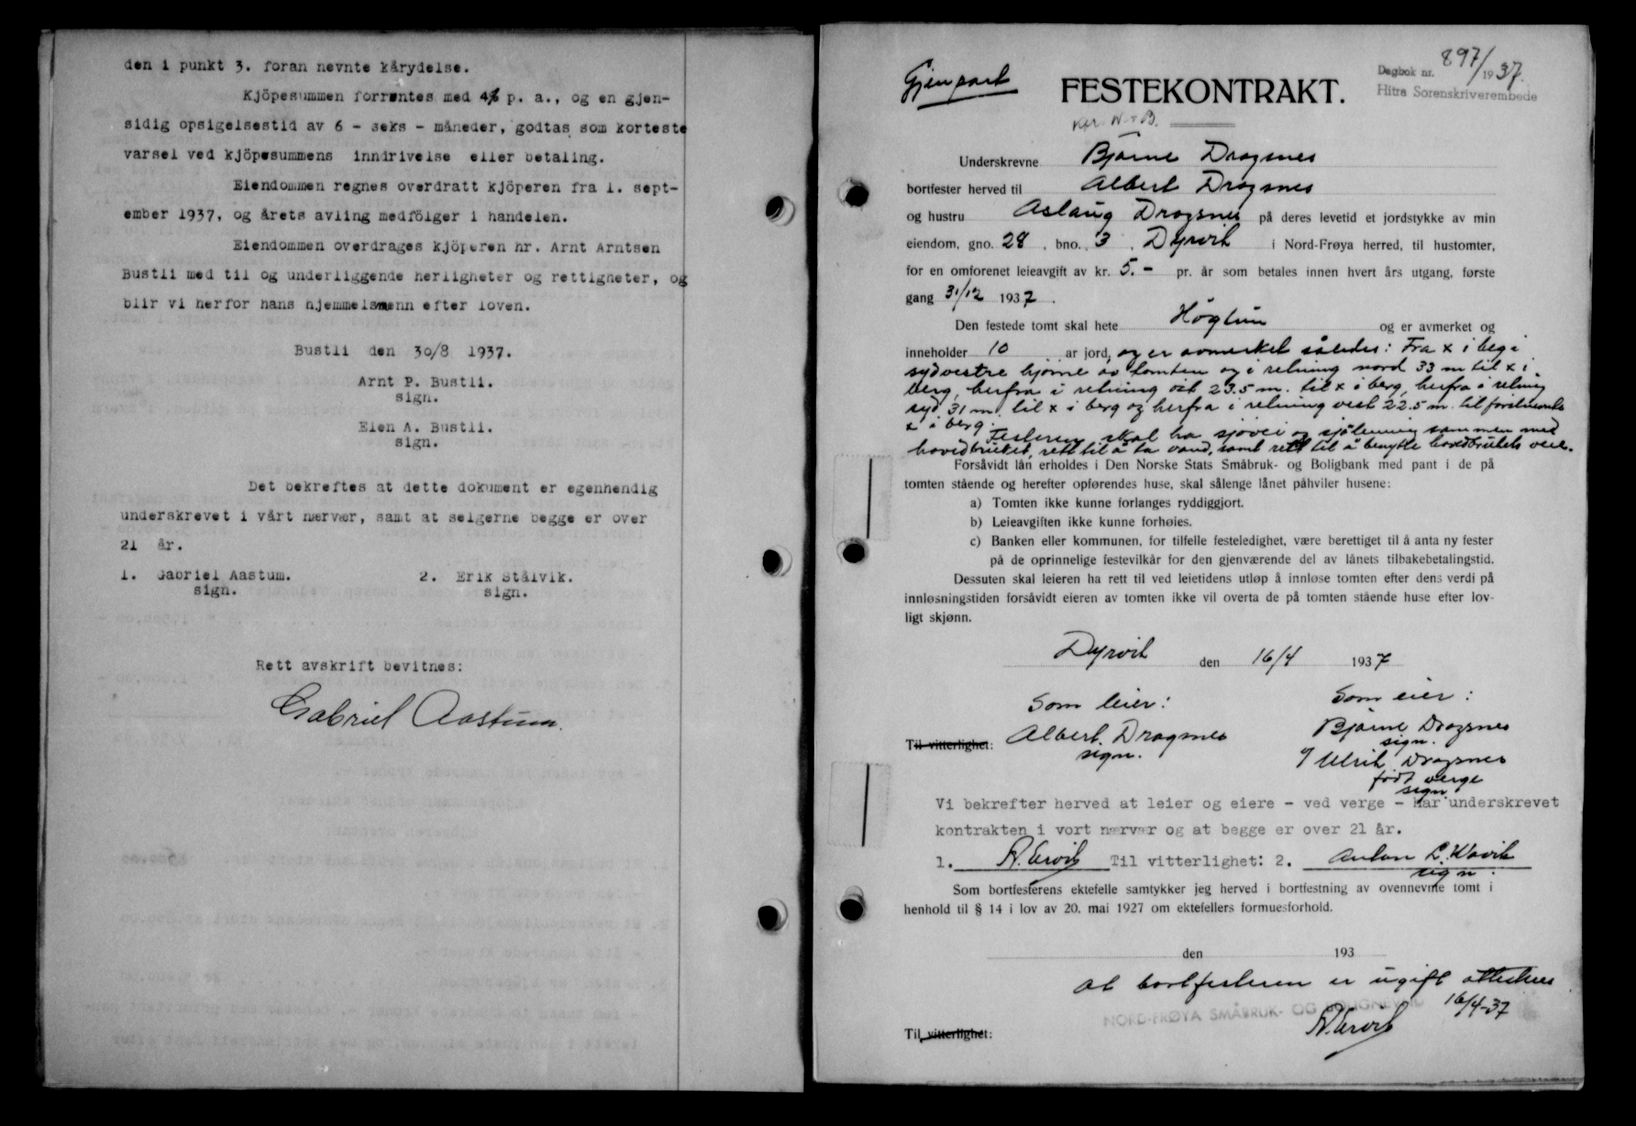 den i punkt 3. foran nevnte kårydelse.
Kjöpesummen forrentes med 4% p. a., og en gjen-
sidig opsigelsestid av 6 - seks - måneder, godtas som korteste
varsel ved kjöpesummens inndrivelse eller betaling.
Eiendommen regnes overdratt kjöperen fra 1. sept-
ember 1937, og årets avling medfölger i handelen.
Eiendommen overdrages kjöperen hr. Arnt Arntsen
Bustli med til og underliggende herligheter og rettigheter, og
blir vi herfor hans hjemmelsmenn efter loven.
Bustli den 30/8 1937.
Arnt P. Bustli.
sign.
Elen A. Bustli.
sign.
Det bekreftes at dette dokument er egenhendig
underskrevet i vårt nærvær, samt at selgerne begge er over
21 år.
1. Gabriel Aastum. 2. Erik Stålvik.
sign. sign.
Rett avskrift bevitnes:
Gabriel Aastum.
Gjenpart
Dagbok nr. 897/1937.
Hitra Sorenskriverembede
FESTEKONTRAKT.
Underskrevne Bjarne Dragsnes
bortfester herved til Albert Dragsnes
og hustru Aslaug Dragsnes på deres levetid et jordstykke av min
eiendom, gno. 28, bno. 3, Dyrvik i Nord-Frøya herred, til hustomter,
for en omforenet leieavgift av kr. 5.- pr. år som betales innen hvert års utgang, første
gang 31/12 1937.
Den festede tomt skal hete Høgtun og er avmerket og
inneholder 10 ar jord, og er avmerket således: Fra x i berg i
sydvestre hjørne av tomten og i retning nord 33 m til x i
berg, herfra i retning øst 23.5 m. til x i berg, herfra i retning
syd 31 m. til x i berg og herfra i retning vest 22.5 m. til førstnevnte
x i berg.
Festeren skal ha sjøvei og sjøtening sammen med
hovedbruket, rett til å ta vand, samt rett til å benytte hovedbrukets veie.
Forsåvidt lån erholdes i Den Norske Stats Småbruk- og Boligbank med pant i de på
tomten stående og herefter opførendes huse, skal sålenge lånet påhviler husene:
a) Tomten ikke kunne forlanges ryddiggjort.
b) Leieavgiften ikke kunne forhøies.
c) Banken eller kommunen, for tilfelle festeledighet, være berettiget til å anta ny fester
på de oprinnelige festevilkår for den gjenværende del av lånets tilbakebetalingstid.
Dessuten skal leieren ha rett til ved leietidens utløp å innløse tomten efter dens verdi på
innløsningstiden forsåvidt eieren av tomten ikke vil overta de på tomten stående huse efter lov-
ligt skjønn.
Dyrvik den 16/4 1937
Som leier: Som eier:
Til vitterlighet: Albert Dragsnes Bjarne Dragsnes
sign. sign.
Ulrik Dragsnes
født verge
sign
Vi bekrefter herved at leier og eiere - ved verge - har underskrevet
kontrakten i vort nærvær og at begge er over 21 år.
1. Til vitterlighet: 2. Anton
sign.
Som bortfesterens ektefelle samtykker jeg herved i bortfestning av ovennevnte tomt i
henhold til § 14 i lov av 20. mai 1927 om ektefellers formuesforhold.
den 193
At bortfesteren er ugift attesteres
16/4-37
NORD-FRØYA SMÅBRUK- OG BOLIGNEVND
Til vitterlighet: